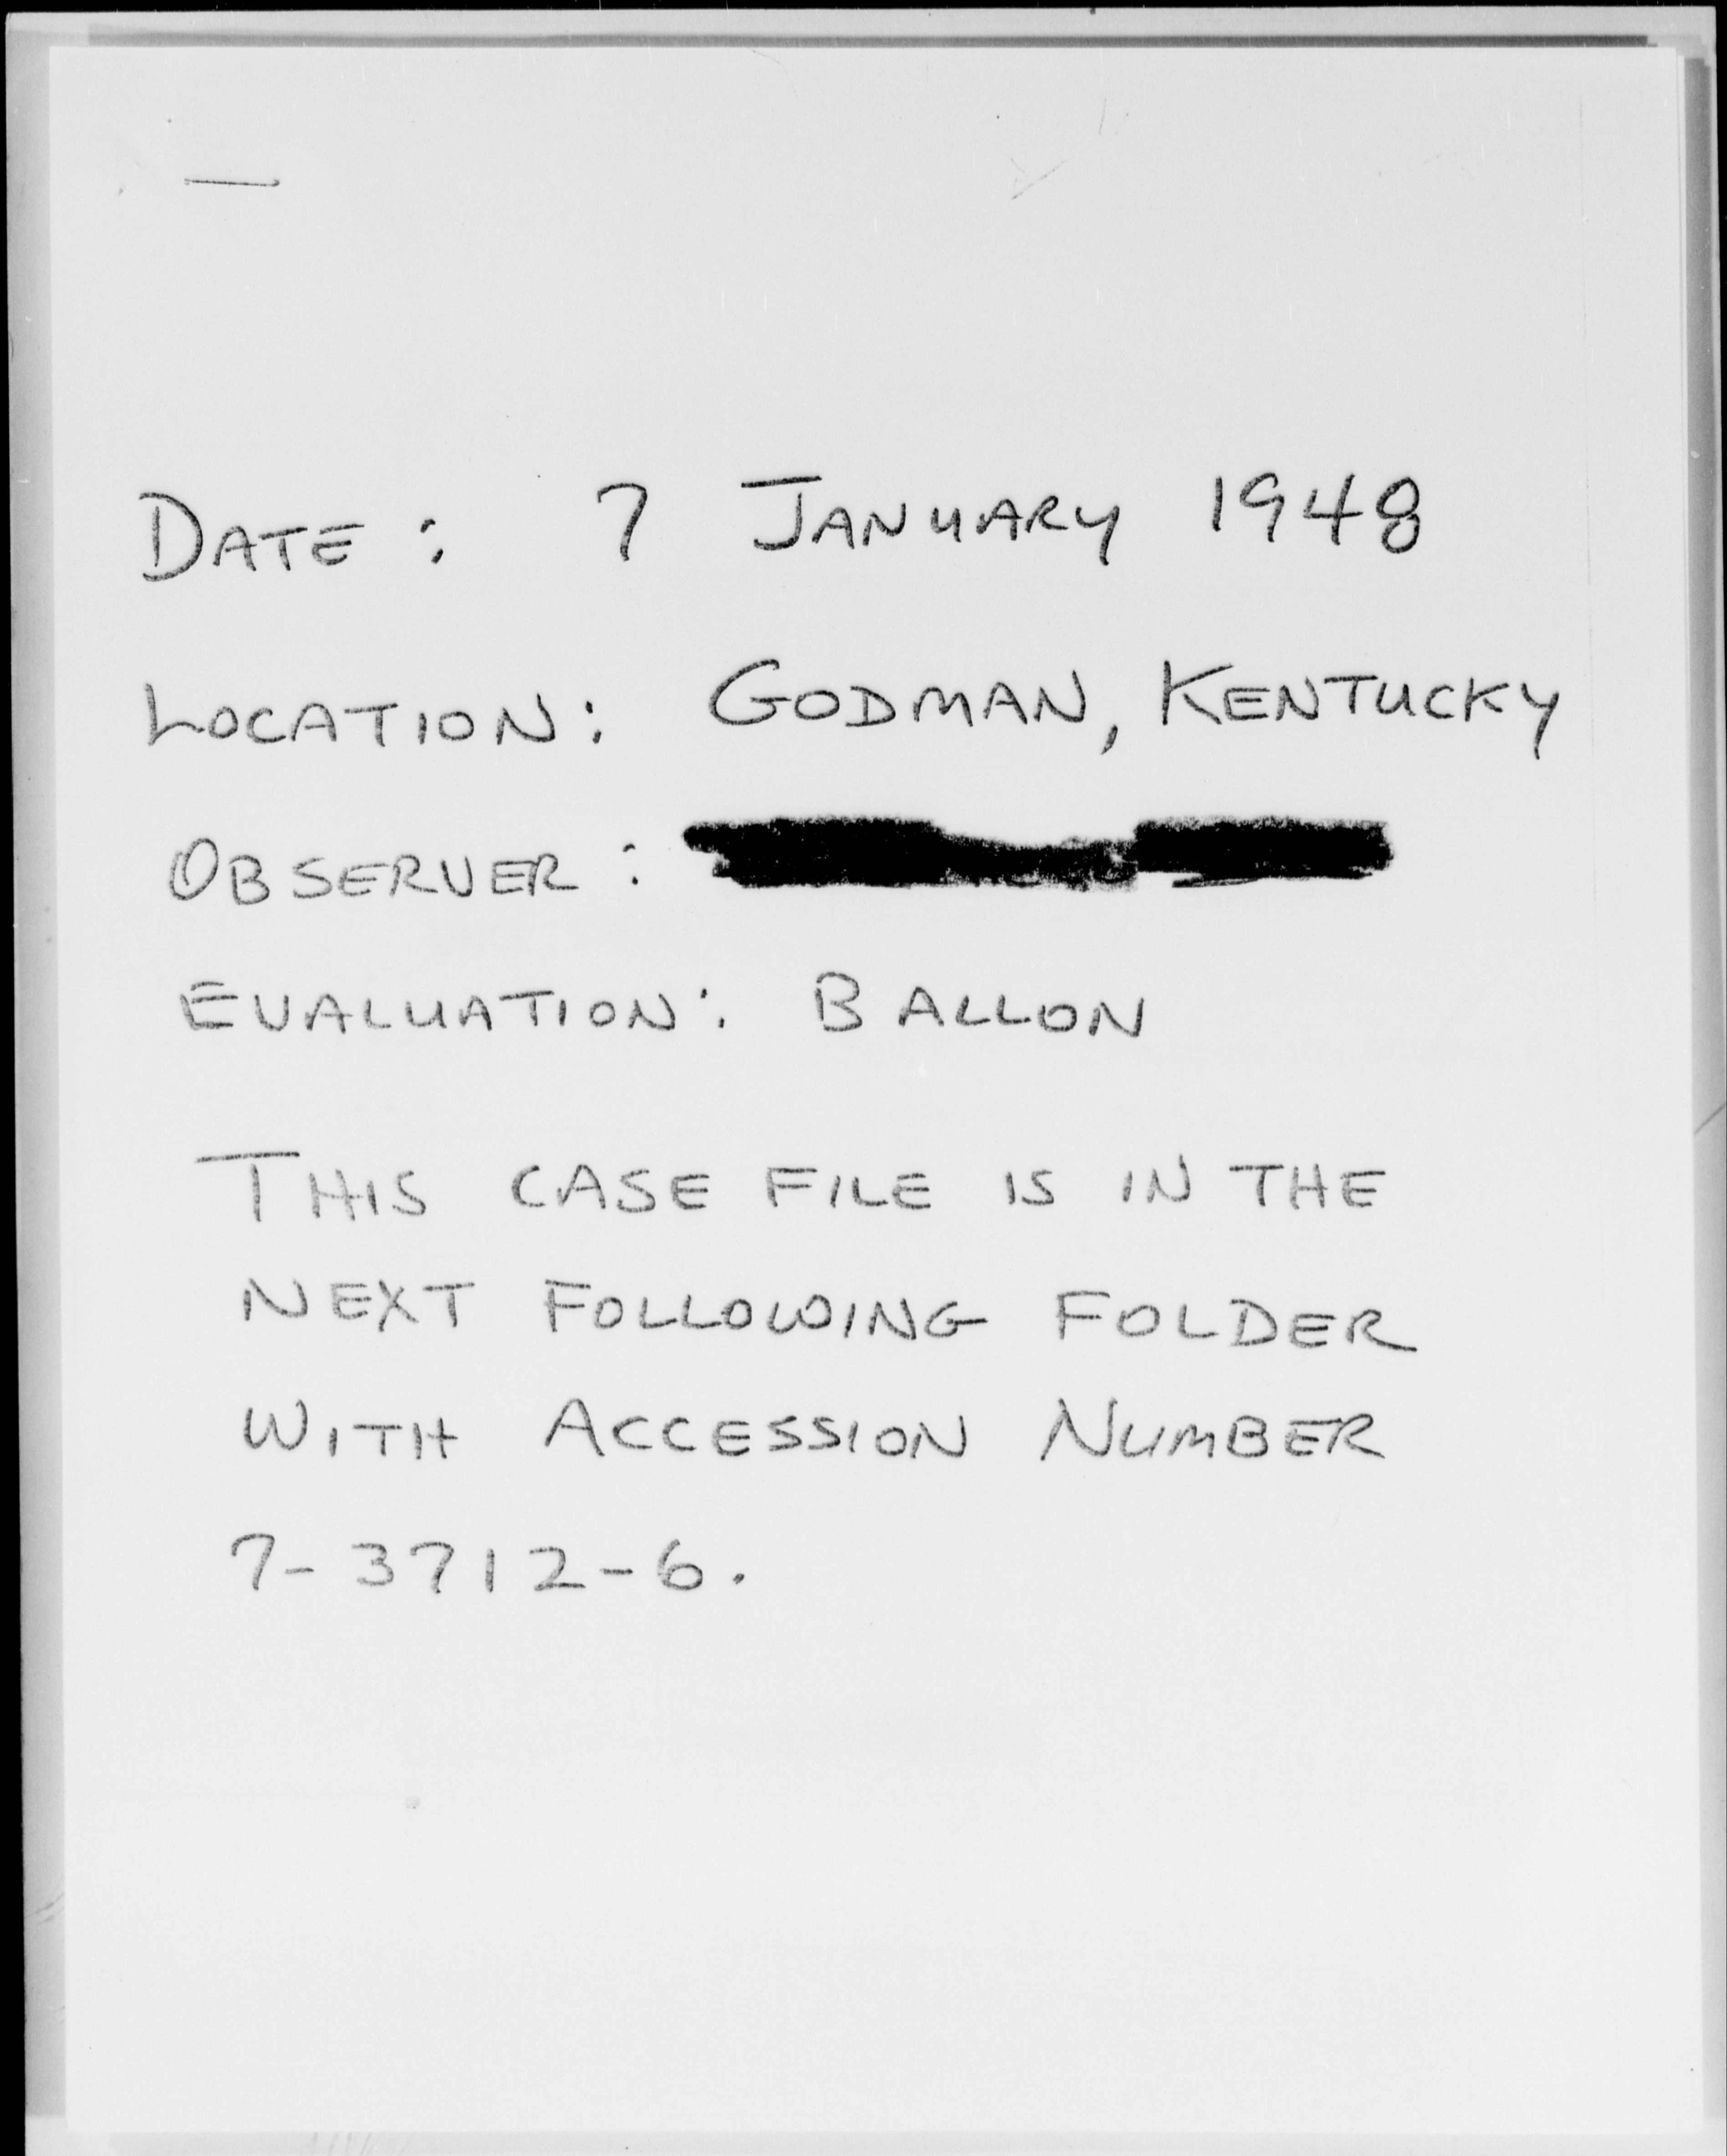 DATE: 7 JANUARY 1948
LOCATION: GODMAN, KENTUCKY
OBSERVER:
EVALUATION: BALLON
THIS CASE FILE IS IN THE
NEXT FOLLOWING FOLDER
WITH ACCESSION NUMBER
7-3712-6.